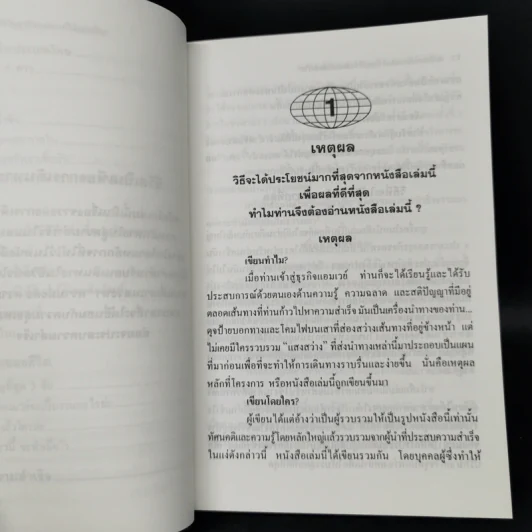 1
เหตุผล
วิธีจะได้ประโยชน์มากที่สุดจากหนังสือเล่มนี้
เพื่อผลที่ดีที่สุด
ทำไมท่านจึงต้องอ่านหนังสือเล่มนี้ ?
เหตุผล
เขียนทำไม?
เมื่อท่านเข้าสู่ธุรกิจแอมเวย์ ท่านก็จะได้เรียนรู้และได้รับ
ประสบการณ์ด้วยตนเองด้านความรู้ ความฉลาด และสติปัญญาที่มีอยู่
ตลอดเส้นทางที่ท่านก้าวไปหาความสำเร็จ มันเป็นเครื่องนำทางของท่าน...
ดุจป้ายบอกทางและโคมไฟบนเสาที่ส่องสว่างเส้นทางที่อยู่ข้างหน้า แต่
ไม่เคยมีใครรวบรวม "แสงสว่าง" ที่ส่งนำทางเหล่านี้มาประกอบเป็นแผน
ที่มาก่อนเพื่อที่จะทำให้การเดินทางราบรื่นและง่ายขึ้น นั่นคือเหตุผล
หลักที่โครงการ หรือหนังสือเล่มนี้ถูกเขียนขึ้นมา
เขียนโดยใคร?
ผู้เขียนได้แต่อ้างว่าเป็นผู้รวบรวมให้เป็นรูปหนังสือนี้เท่านั้น
ทัศนคติและความรู้โดยหลักใหญ่แล้วรวบรวมจากผู้นำที่ประสบความสำเร็จ
ในแง่ดังกล่าวนี้ หนังสือเล่มนี้ได้เขียนรวมกัน โดยบุคคลผู้ซึ่งทำให้